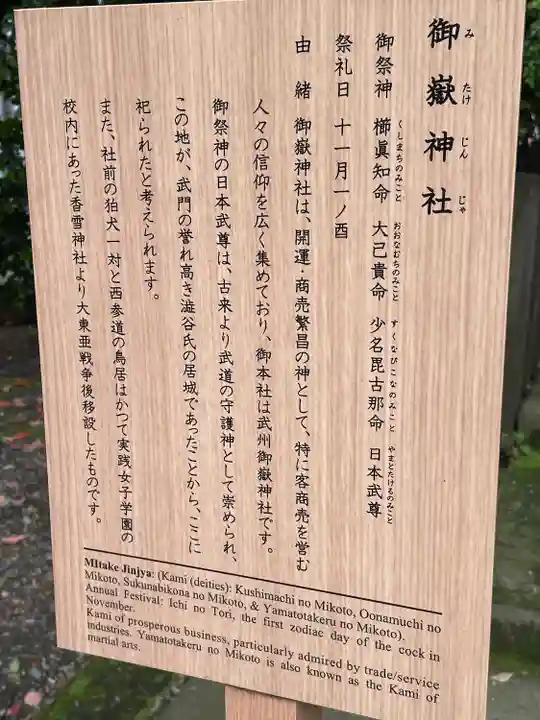 御嶽神社
み たけ じん じゃ
御祭神 櫛眞知命 大己貴命 少名毘古那命 日本武尊
くしまちのみこと おおなむちのみこと すくなびこなのみこと やまとたけるのみこと
祭礼日 十一月一ノ酉
由緒 御嶽神社は、開運・商売繁昌の神として、特に客商売を営む
人々の信仰を広く集めており、御本社は武州御嶽神社です。
御祭神の日本武尊は、古来より武道の守護神として崇められ、
この地が、武門の誉れ高き澁谷氏の居城であったことから、ここに
祀られたと考えられます。
また、社前の狛犬一対と西参道の鳥居はかつて実践女子学園の
校内にあった香雪神社より大東亜戦争後移設したものです。
MItake Jinjya: (Kami (deities): Kushimachi no Mikoto, Oonamuchi no
Mikoto, Sukunabikona no Mikoto, & Yamatotakeru no Mikoto).
Annual Festival: Ichi no Tori, the first zodiac day of the cock in
November.
Kami of prosperous business, particularly admired by trade/service
industries. Yamatotakeru no Mikoto is also known as the Kami of
martial arts.